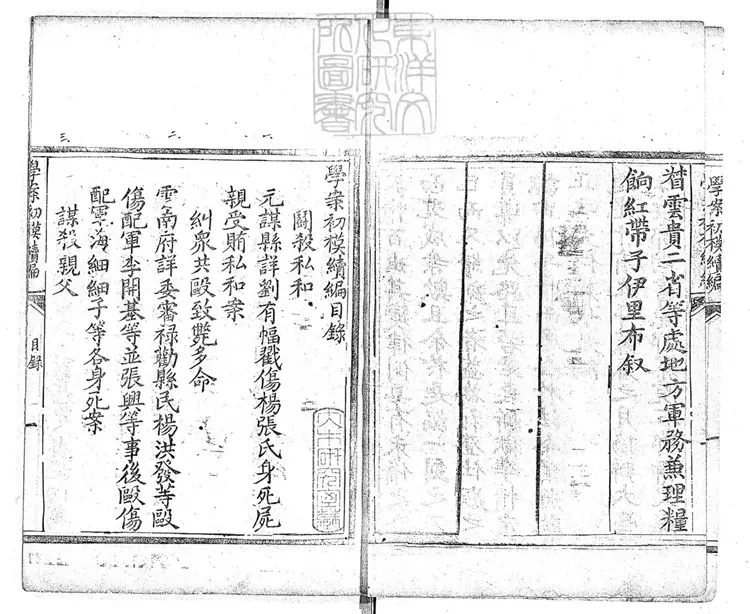 督雲貴二省等處地方軍務兼理糧
餉紅帶子伊里布叙
學案初模續編
學案初模續編目錄
鬬殺私和
一
元謀縣詳劉有幅戳傷楊張氏身死屍
親受賄私和案
糾衆共毆致斃多命
二
雲南府詳委審祿勸縣民楊洪發等毆
傷配軍李開基等並張興等事後毆傷
配軍海細細子等各身死案
謀殺親父
三
學案初模續編
目錄
東洋文化研究所圖書